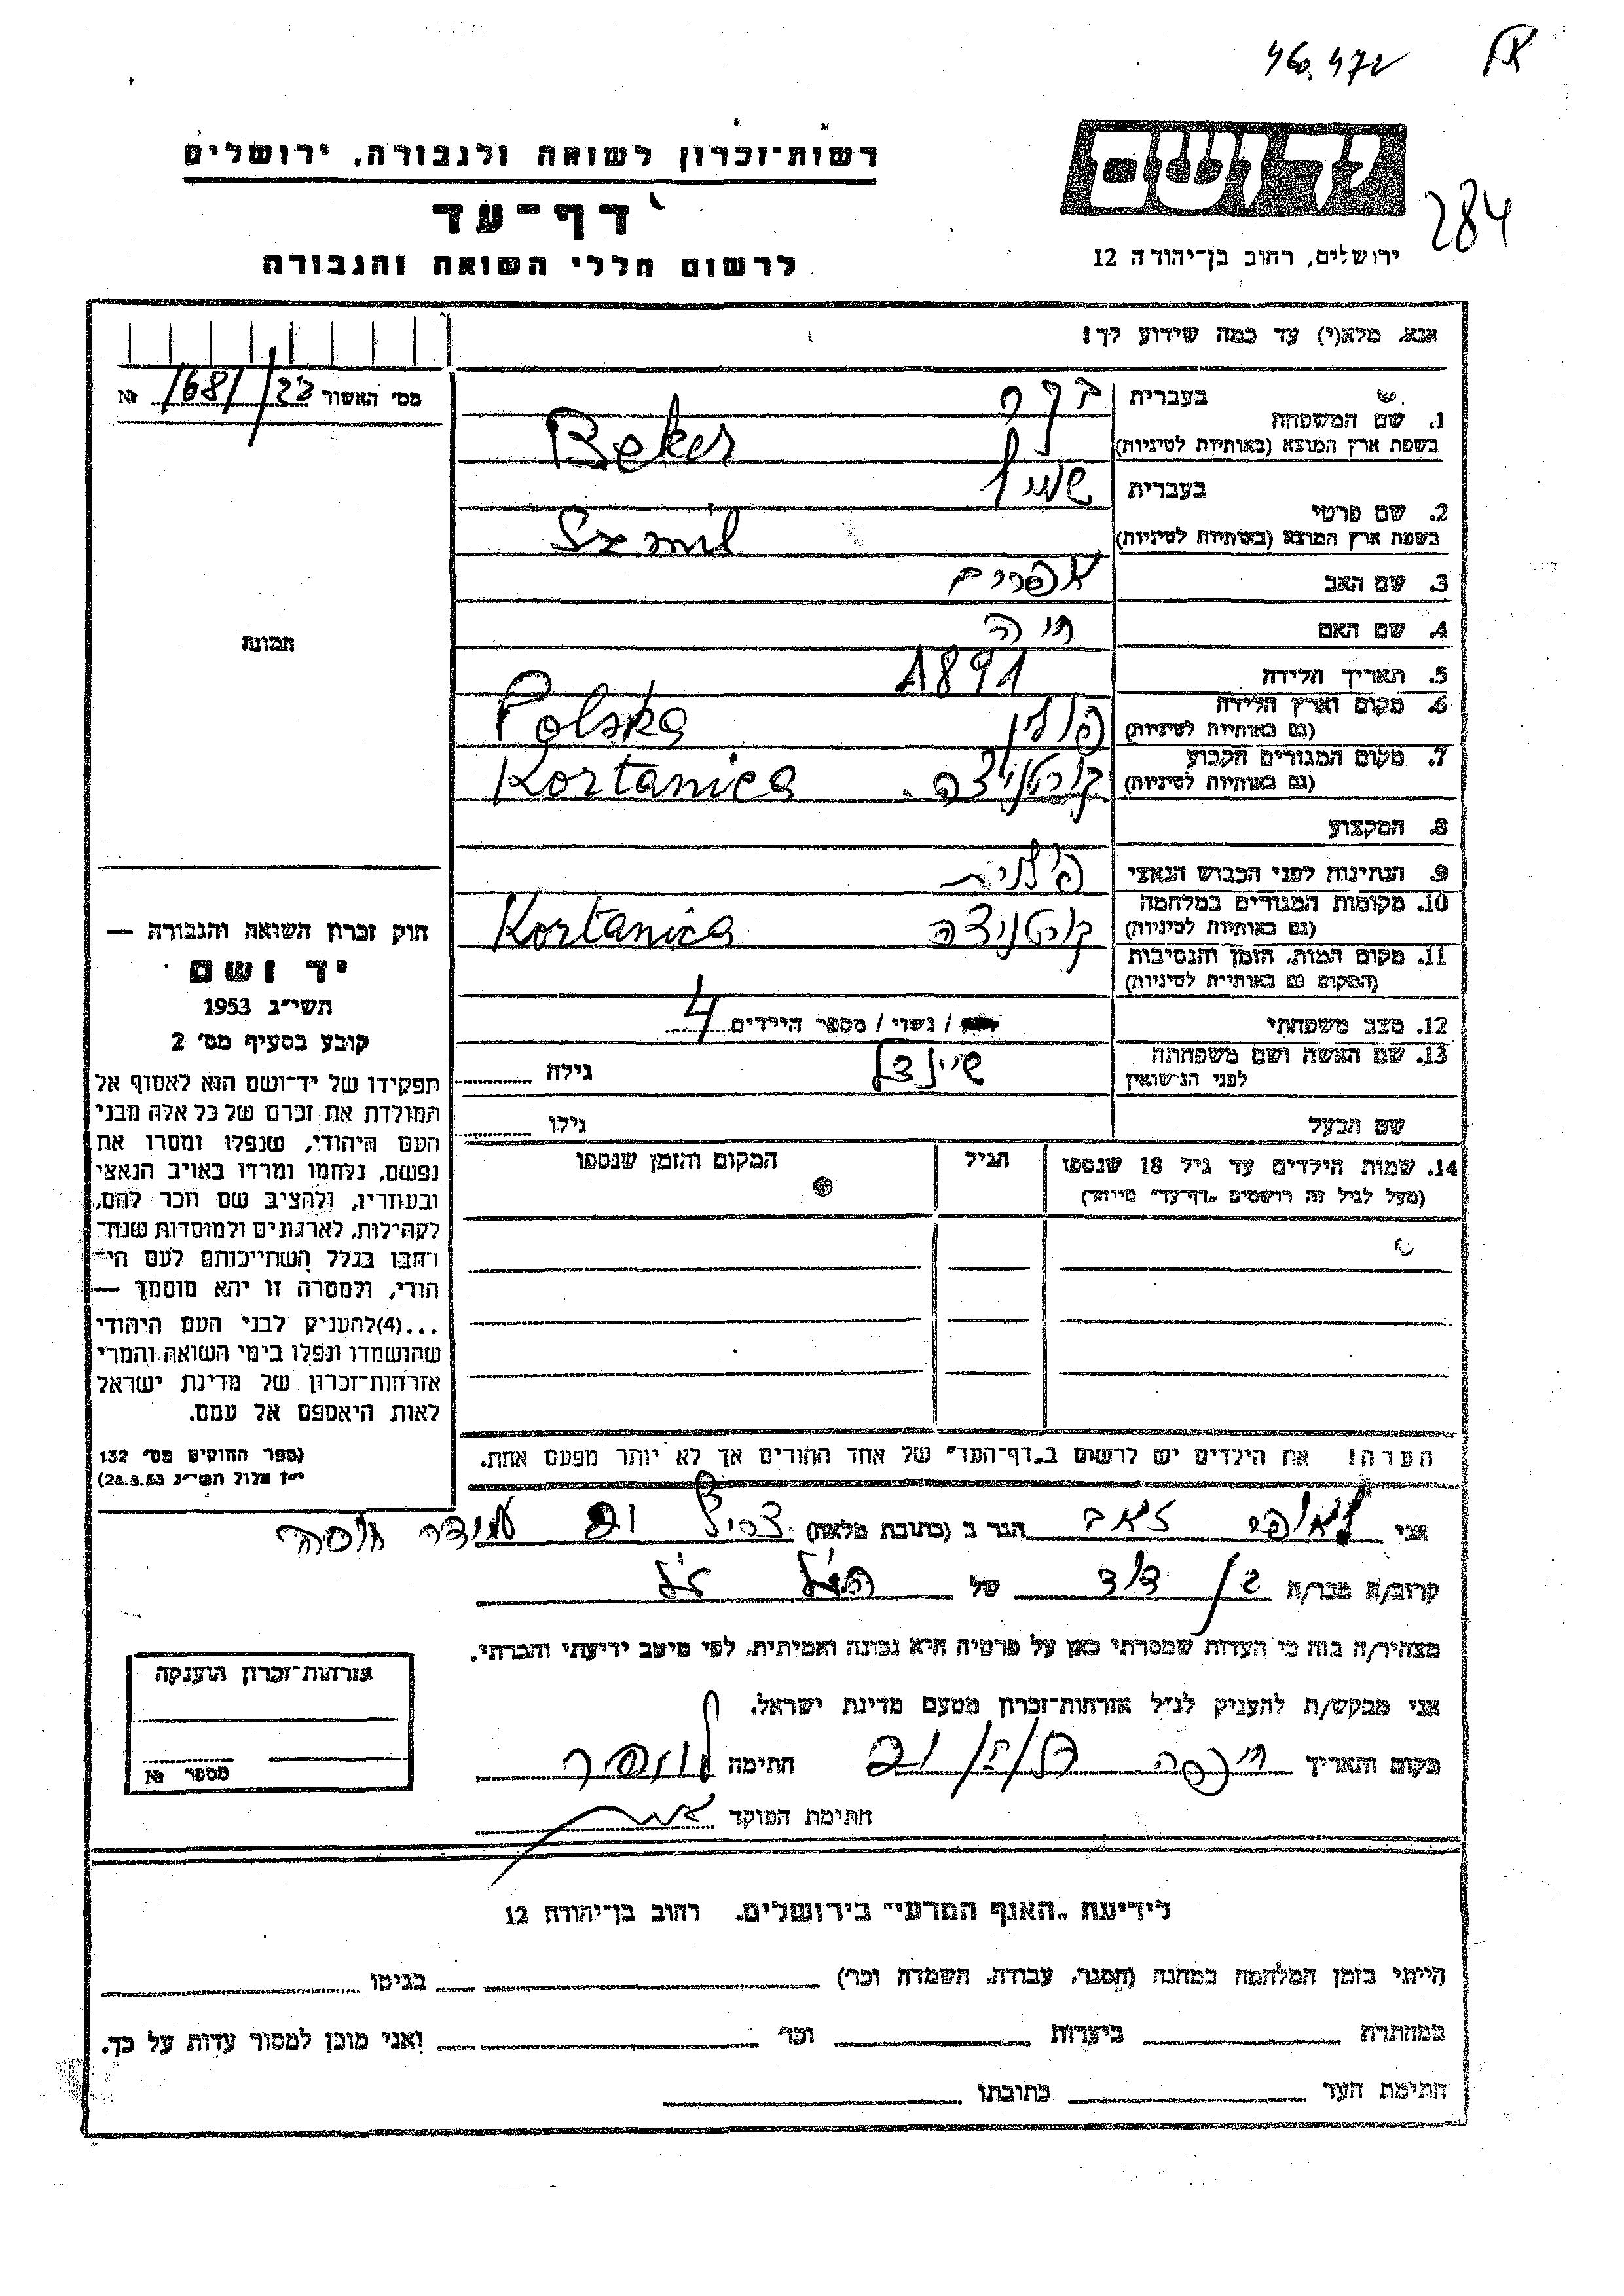 46.472
284
יד ושם
רשות־זכרון לשואה ולגבורה, ירושלים
דף־עד
לרשום חללי השואה והגבורה
ירושלים, רחוב בן־יהודה 12
נא מלא(י) עד כמה שידוע לך!
מס׳ האשור 1681/22 №
1. שם המשפחה
בעברית בקר
בשפת ארץ המוצא (באותיות לטיניות) Beker
2. שם פרטי
בעברית שמיל
בשפת ארץ המוצא (באותיות לטיניות) Szmil
3. שם האב אפרים
4. שם האם חיה
5. תאריך הלידה 1891
6. מקום וארץ הלידה (גם באותיות לטיניות) פולין Polska
7. מקום המגורים הקבוע (גם באותיות לטיניות) קורטניצה Kortanica
8. המקצוע
9. הנתינות לפני הכבוש הנאצי פולנית
10. מקומות המגורים במלחמה (גם באותיות לטיניות) קורטניצה Kortanica
11. מקום המות, הזמן והנסיבות (המקום גם באותיות לטיניות)
12. מצב משפחתי / נשוי / מספר הילדים 4
13. שם האשה ושם משפחתה לפני הנישואין שיינדל גילה
שם הבעל גילו
14. שמות הילדים עד גיל 18 שנספו הגיל המקום והזמן שנספו
(מעל לגיל זה רושמים „דף־עד״ מיוחד)
הערה! את הילדים יש לרשום ב„דף־העד״ של אחד ההורים אך לא יותר מפעם אחת.
תמונה
חוק זכרון השואה והגבורה —
יד ושם
תשי״ג 1953
קובע בסעיף מס׳ 2
תפקידו של יד־ושם הוא לאסוף אל
המולדת את זכרם של כל אלה מבני
העם היהודי, שנפלו ומסרו את
נפשם, נלחמו ומרדו באויב הנאצי
ובעוזריו, ולהציב שם וזכר להם,
לקהילות, לארגונים ולמוסדות שנח־
רבו בגלל השתייכותם לעם הי־
הודי, ולמטרה זו יהא מוסמך —
...(4)להעניק לבני העם היהודי
שהושמדו ונפלו בימי השואה והמרי
אזרחות־זכרון של מדינת ישראל
לאות היאספם אל עמם.
(ספר החוקים מס׳ 132
י״ז אלול תשי״ג 28.8.53)
אני זאב הגר ב (כתובת מלאה)
קרוב/ה מכר/ה בן דוד של הנ״ל
מצהיר/ה בזה כי העדות שמסרתי כאן על פרטיה היא נכונה ואמיתית, לפי מיטב ידיעתי והכרתי.
אני מבקש/ת להעניק לנ״ל אזרחות־זכרון מטעם מדינת ישראל.
מקום ותאריך חיפה חתימה
חתימת הפוקד
אזרחות־זכרון הוענקה
מספר №
לידיעת „האגף המדעי״ בירושלים, רחוב בן־יהודה 12
הייתי בזמן המלחמה במחנה (הסגר, עבודה, השמדה וכר) בגיטו
במחתרת ביערות וכר ואני מוכן למסור עדות על כך.
חתימת העד כתובתו